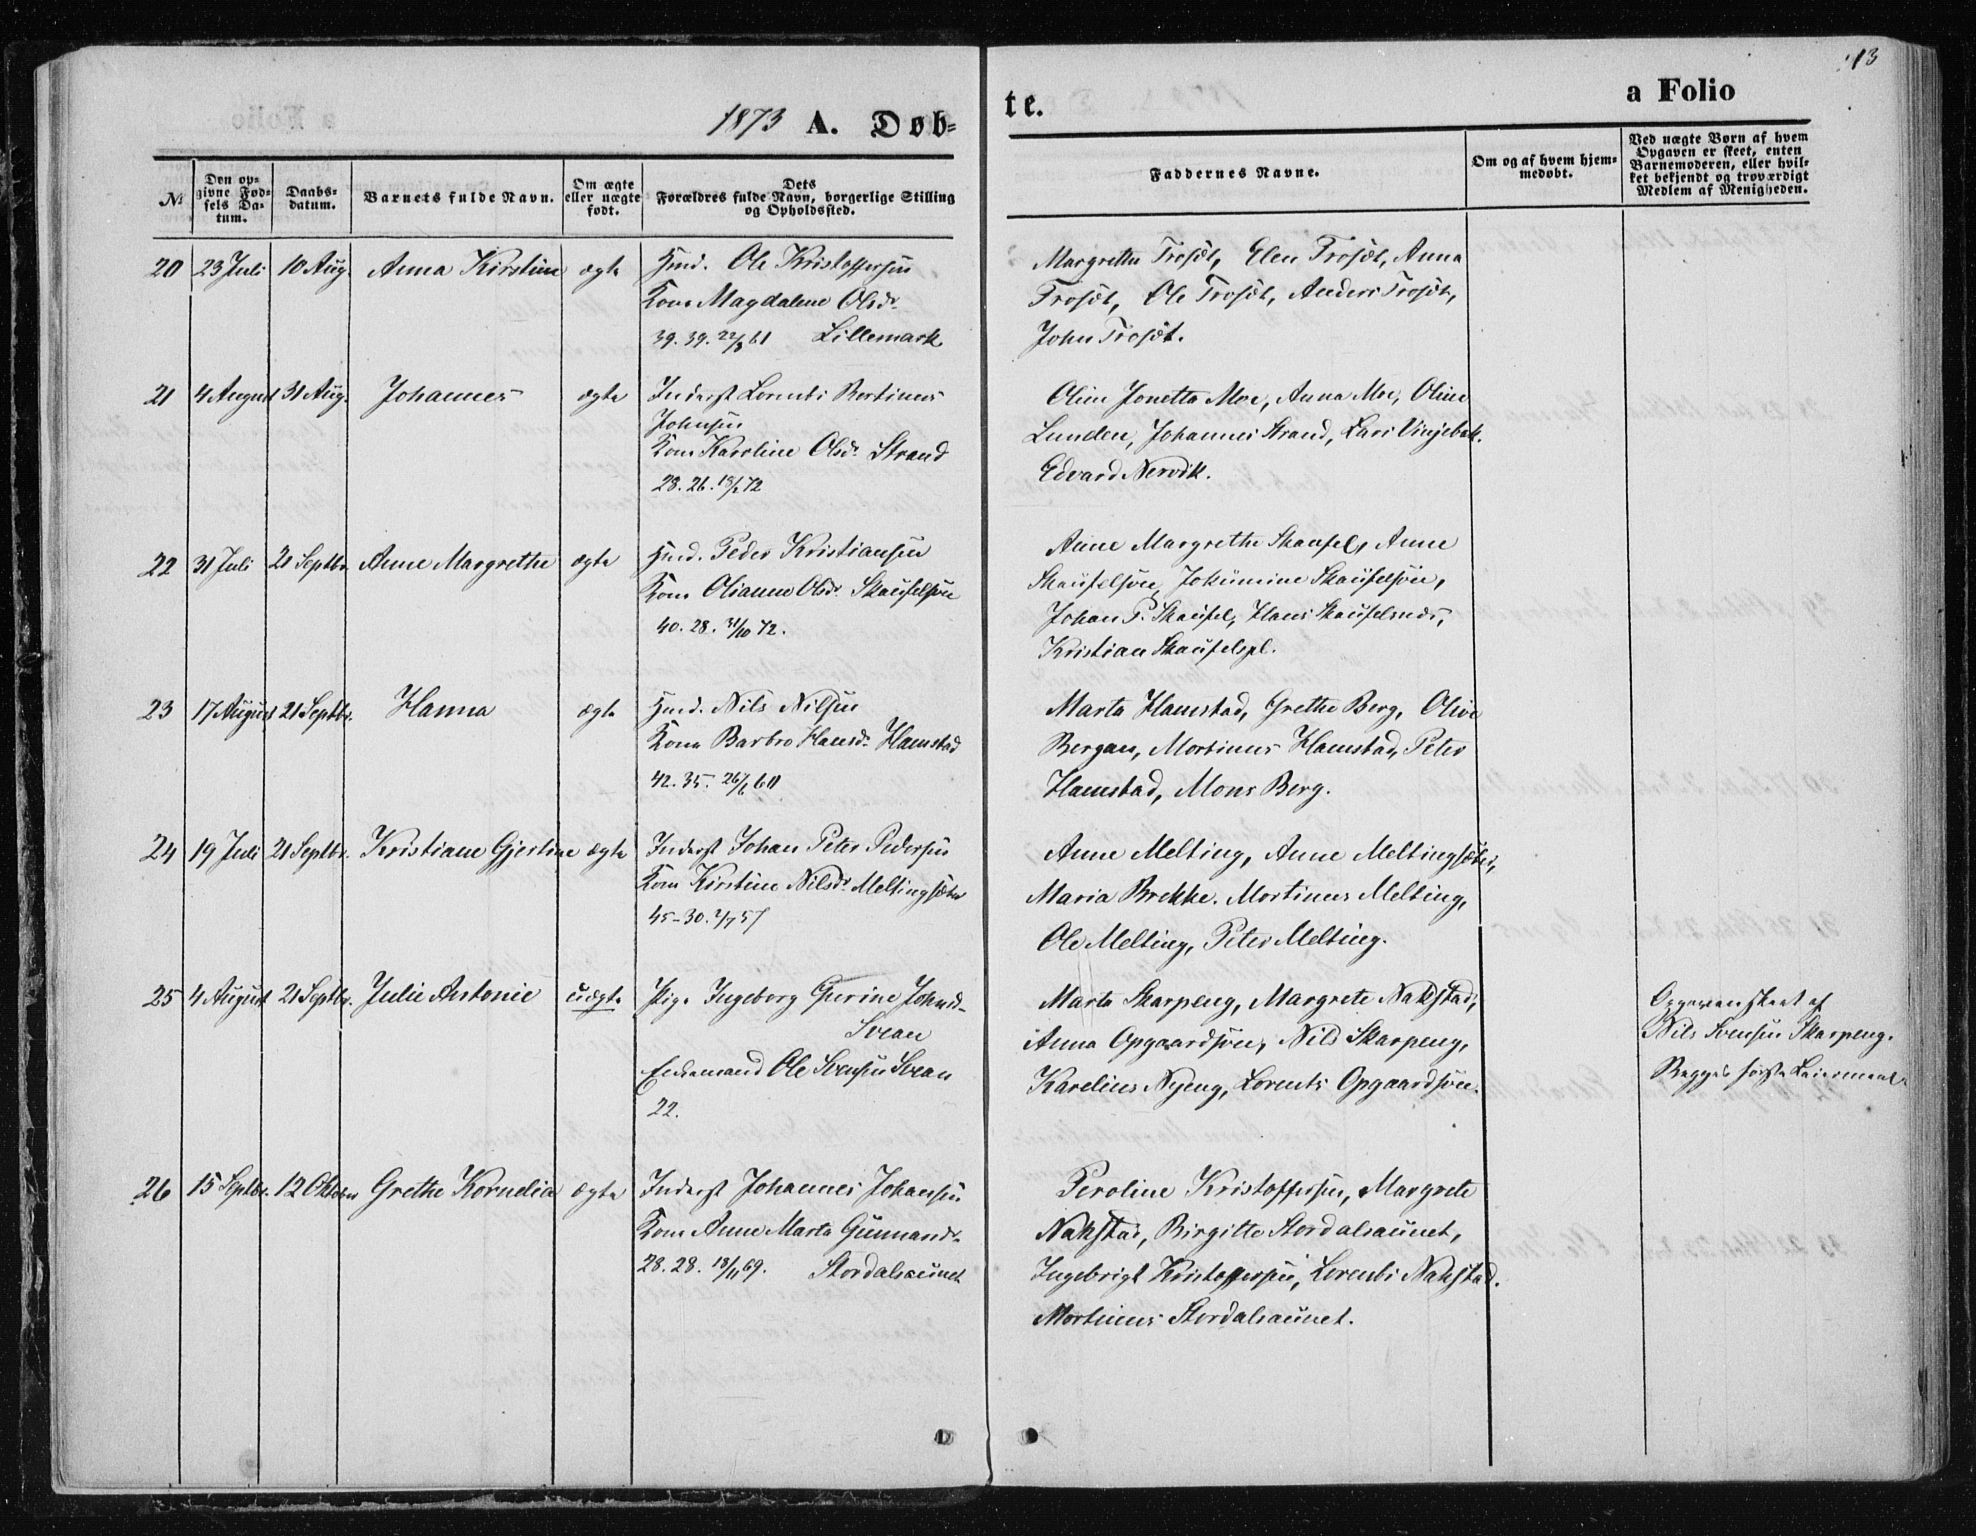 13
1873 A. Døb=
te.
a Folio
№
Den op-
givne Fød-
sels Da-
tum.
Daabs-
datum.
Barnets fulde Navn.
Om ægte
eller uægte
født.
Dets
Forældres fulde Navn, borgerlige Stilling
og Opholdssted.
Faddernes Navne.
Om og af hvem hjem-
medøbt.
Ved uægte Børn af hvem
Opgaven er skeet, enten
Barnemoderen, eller hvil-
ket bekjendt og troværdigt
Medlem af Menigheden.
20 23 Juli 10 Aug. Anna Kirstine ægte Hmd. Ole Kristoffersen
Kone Magdalene Olsdr.
39. 39. 22/3 61 Lillemark
Margrethe Trøsæt, Elen Trøsæt, Anna
Trøsæt, Ole Trøsæt, Anders Trøsæt,
John Trøsæt.
21 4 August 31 Aug. Johannes ægte Inderst Lorents Bertinus
Johnsen
Kone Karoline Olsdr. Strand
28. 26. 72
Oline Jonetta Moe, Anna Moe, Oline
Lunden, Johannes Strand, Lars Vinjebak.
Edvard Nervik.
22 31 Juli 21 Septbr. Anne Margrethe ægte Hmd. Peder Kristiansen
Kone Olianne Olsdr. Skaufelsøen
40. 28. 31/10 72.
Anne Margrethe Skaufel, Anne
Skaufelsøen, Johannine Skaufelsøen,
Johan P. Skaufel, Hans Skaufelsnæs,
Kristian Skaufelspl.
23 17 August 21 Septbr. Hanna ægte Hmd. Nils Nilsen
Kone Barbro Hansdr. Hamstad
42. 35. 26/6 60
Marta Hamstad, Grethe Berg, Olive
Bergan, Mortinus Hamstad, Peter
Hamstad, Mons Berg.
24 19 Juli 21 Septbr. Kristiane Gjertine ægte Inderst Johan Peter Pedersen
Kone Kirstine Nilsdr. Meltingsæter
45-30. 2/7 57
Anne Melting, Anne Meltingsæter,
Maria Brekke. Mortinus Melting,
Ole Melting, Peter Melting.
25 4 August 21 Septbr. Julie Antonie uægte Pige Ingeborg Gurine Johnsdr.
Svean
Enkemand Ole Svensen Svean
22.
Marta Skarpeng, Margrete Nakstad,
Anna Opgaardsøen, Nils Skarpeng,
Karelius Nyeng, Lorents Opgaardsøen.
Opgaven skeet af
Nils Svensen Skarpeng.
Begges første Leiermaal.
26 15 Septbr. 12 Oktobr. Grethe Kornelia ægte Inderst Johannes Johansen
Kone Anne Marta Gunnarsdr.
28. 28. 18/11 69. Stordalsaunet
Peroline Kristoffersen, Margrete
Nakstad, Birgitte Stordalsaunet,
Ingebrigt Kristoffersen, Lorents Nakstad.
Mortinus Stordalsaunet.